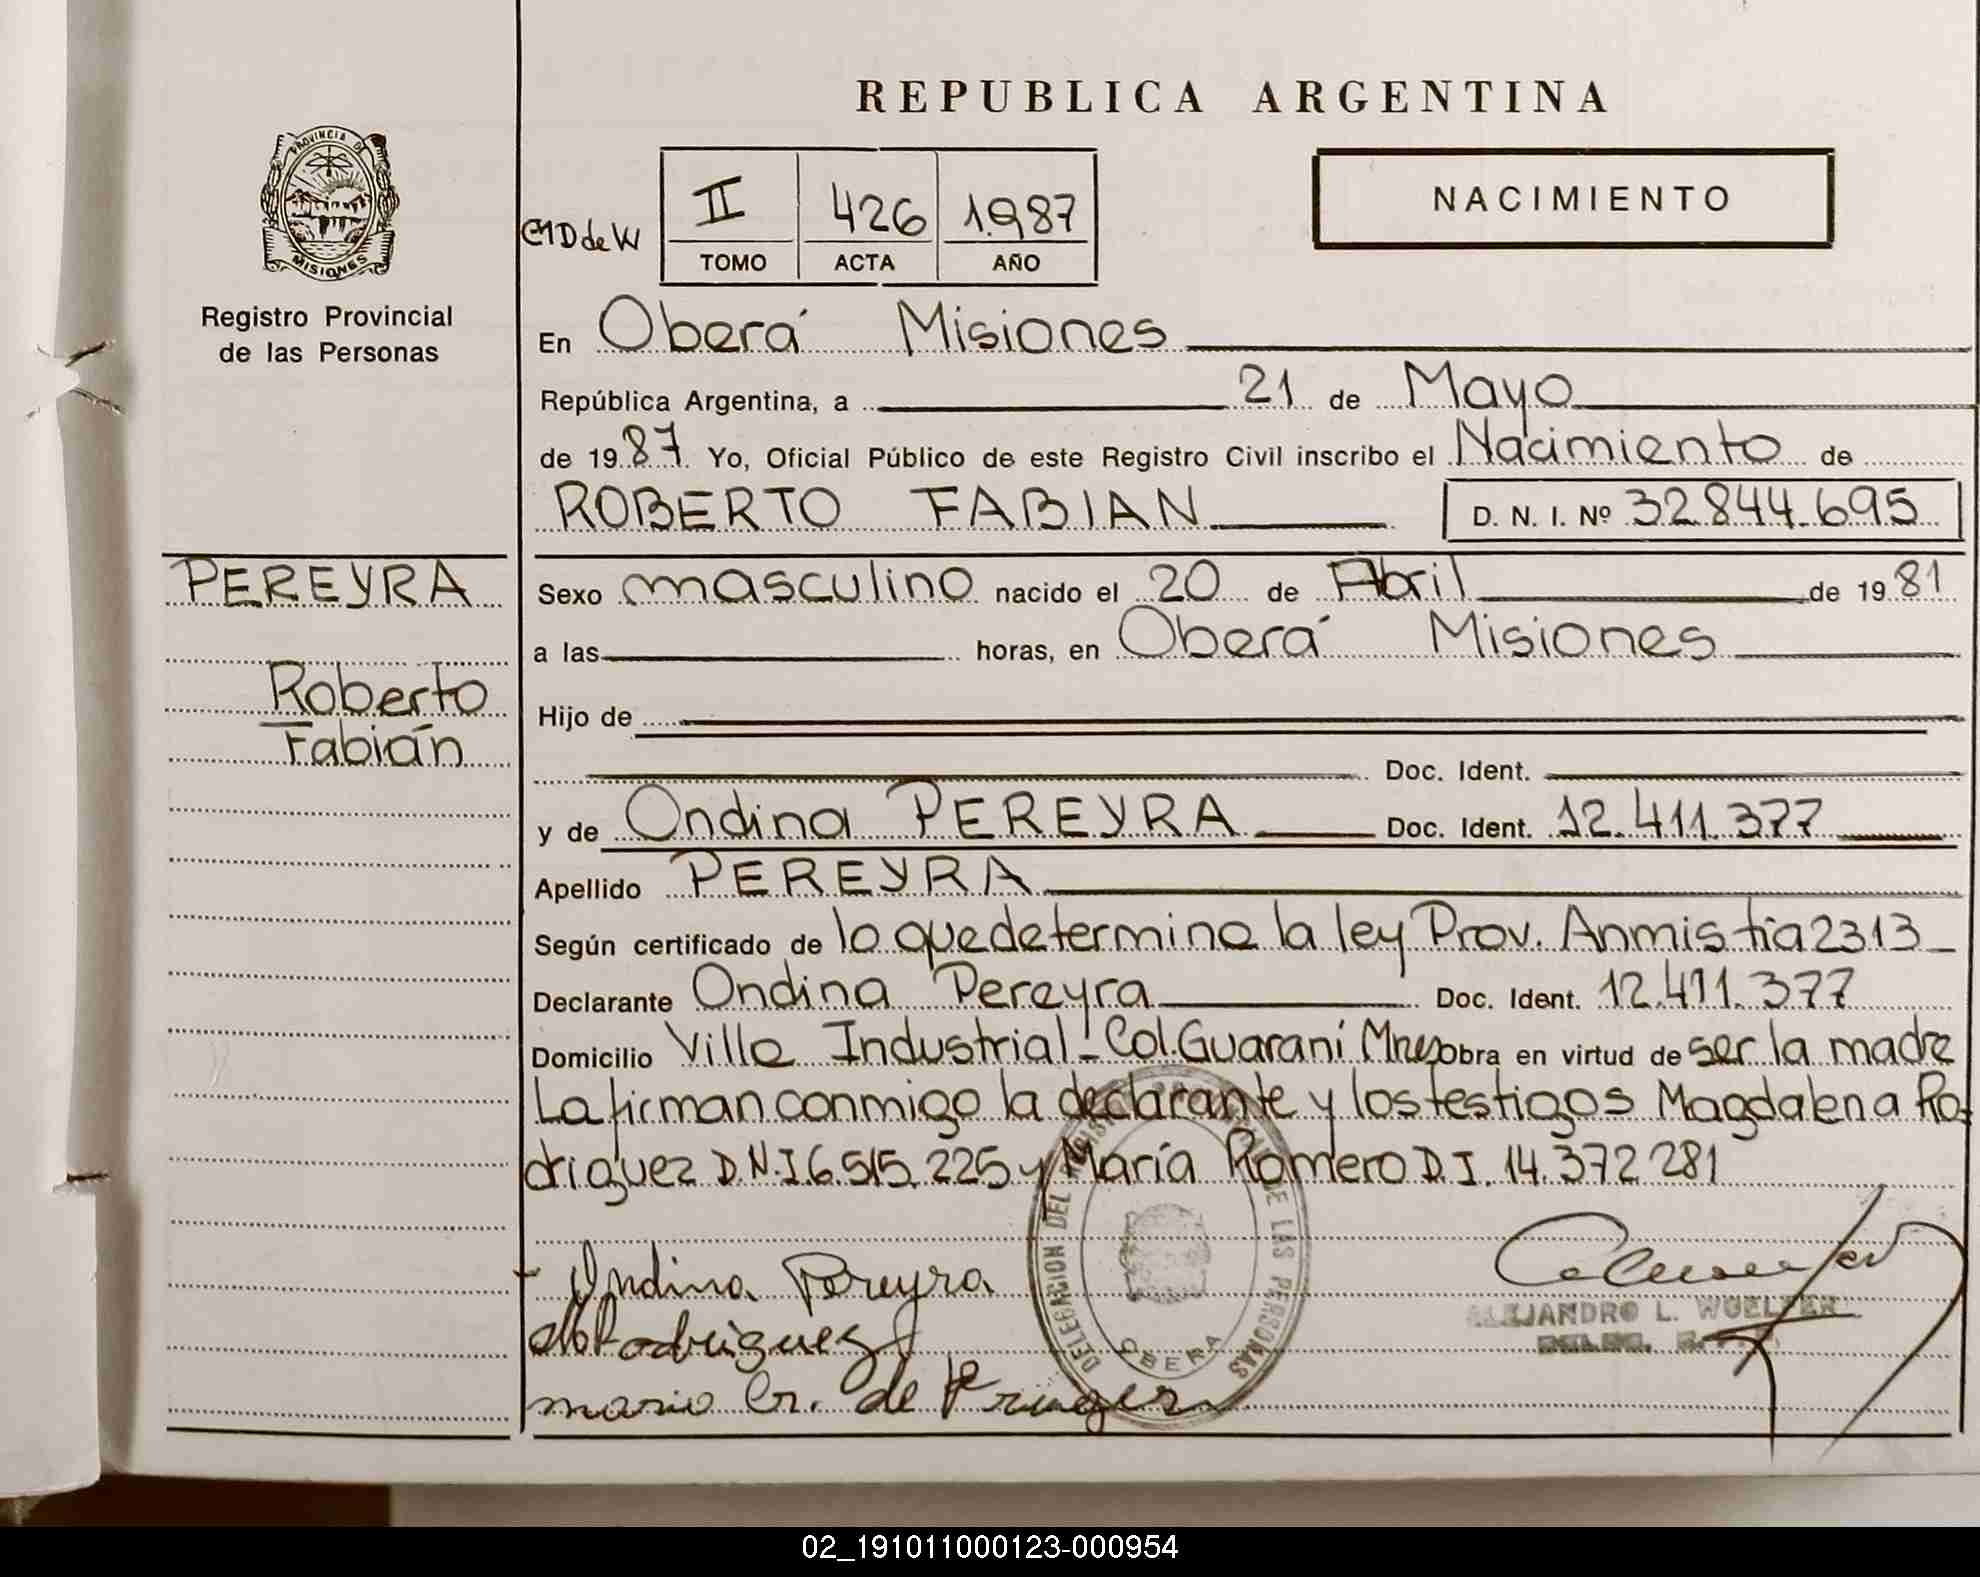 REPUBLICA ARGENTINA
PROVINCIA DE
MISIONES
Registro Provincial
de las Personas
II 426 1.987
TOMO ACTA AÑO
NACIMIENTO
En Oberá Misiones
República Argentina, a 21 de Mayo
de 1987. Yo, Oficial Público de este Registro Civil inscribo el Nacimiento de
ROBERTO FABIAN D. N. I. Nº 32.844.695
PEREYRA
Roberto
Fabián
Sexo masculino nacido el 20 de Abril de 1981
a las horas, en Oberá Misiones
Hijo de
Doc. Ident.
y de Ondina PEREYRA Doc. Ident. 12.411.377
Apellido PEREYRA
Según certificado de lo que determina la ley Prov. Anmistia 2313
Declarante Ondina Pereyra Doc. Ident. 12.411.377
Domicilio Villa Industrial - Col. Guaraní Mnes obra en virtud de ser la madre
La firman conmigo la declarante y los testigos Magdalena Ro-
driguez D.N.I 6.515.225 y María Romero D.I. 14.372.281
Ondina Pereyra
Rodriguez
DELEGACION DEL REGISTRO PROVINCIAL DE LAS PERSONAS
OBERA
ALEJANDRO L. WOELFER
02_191011000123-000954